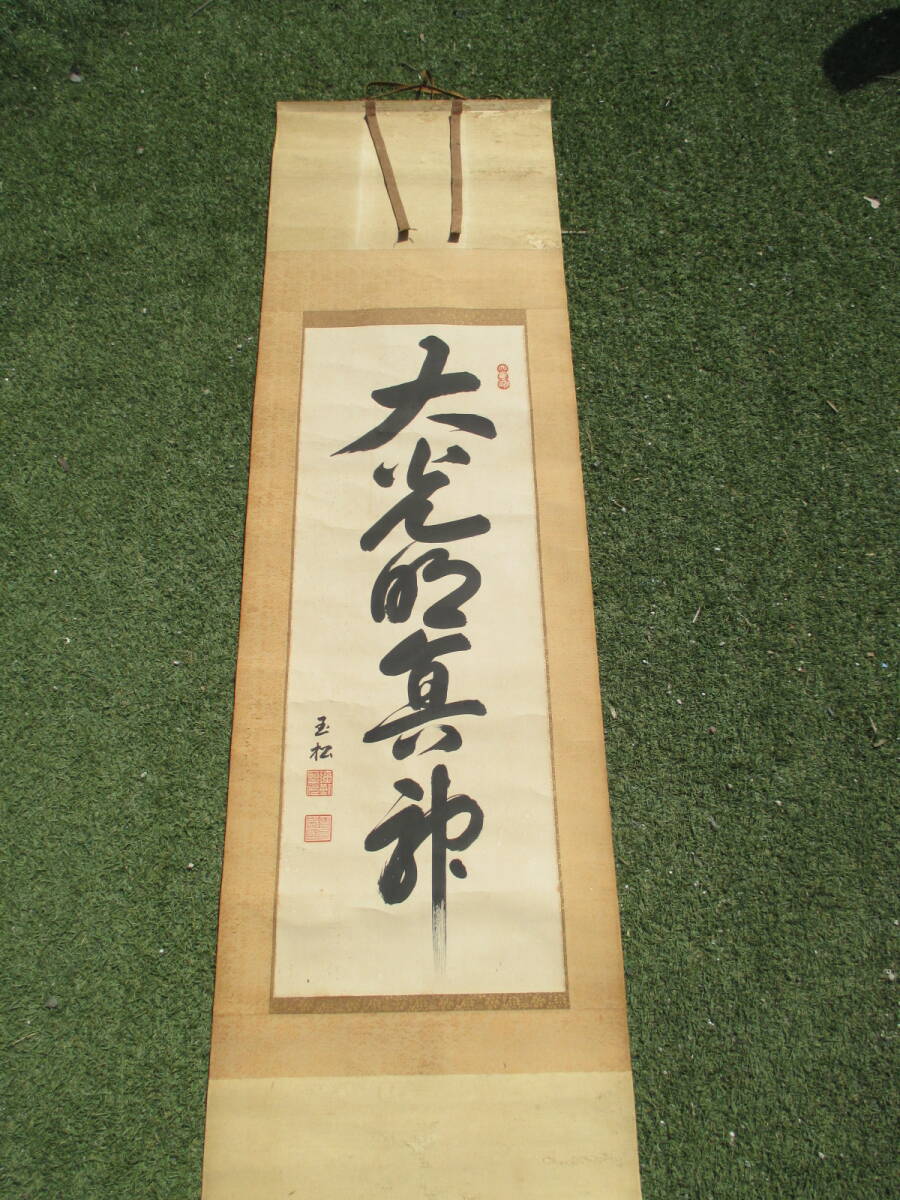 大光明真神
玉松